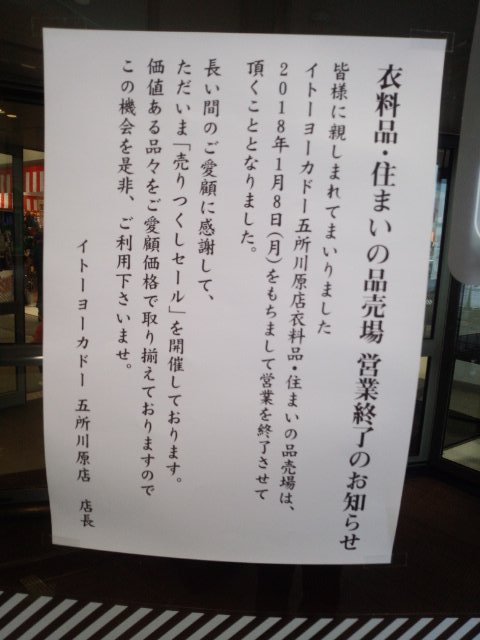 衣料品・住まいの品売場 営業終了のお知らせ
皆様に親しまれてまいりました
イトーヨーカドー五所川原店衣料品・住まいの品売場は、
2018年1月8日(月)をもちまして営業を終了させて
頂くこととなりました。
長い間のご愛顧に感謝して、
ただいま「売りつくしセール」を開催しております。
価値ある品々をご愛顧価格で取り揃えておりますので
この機会を是非、ご利用下さいませ。
イトーヨーカドー 五所川原店 店長